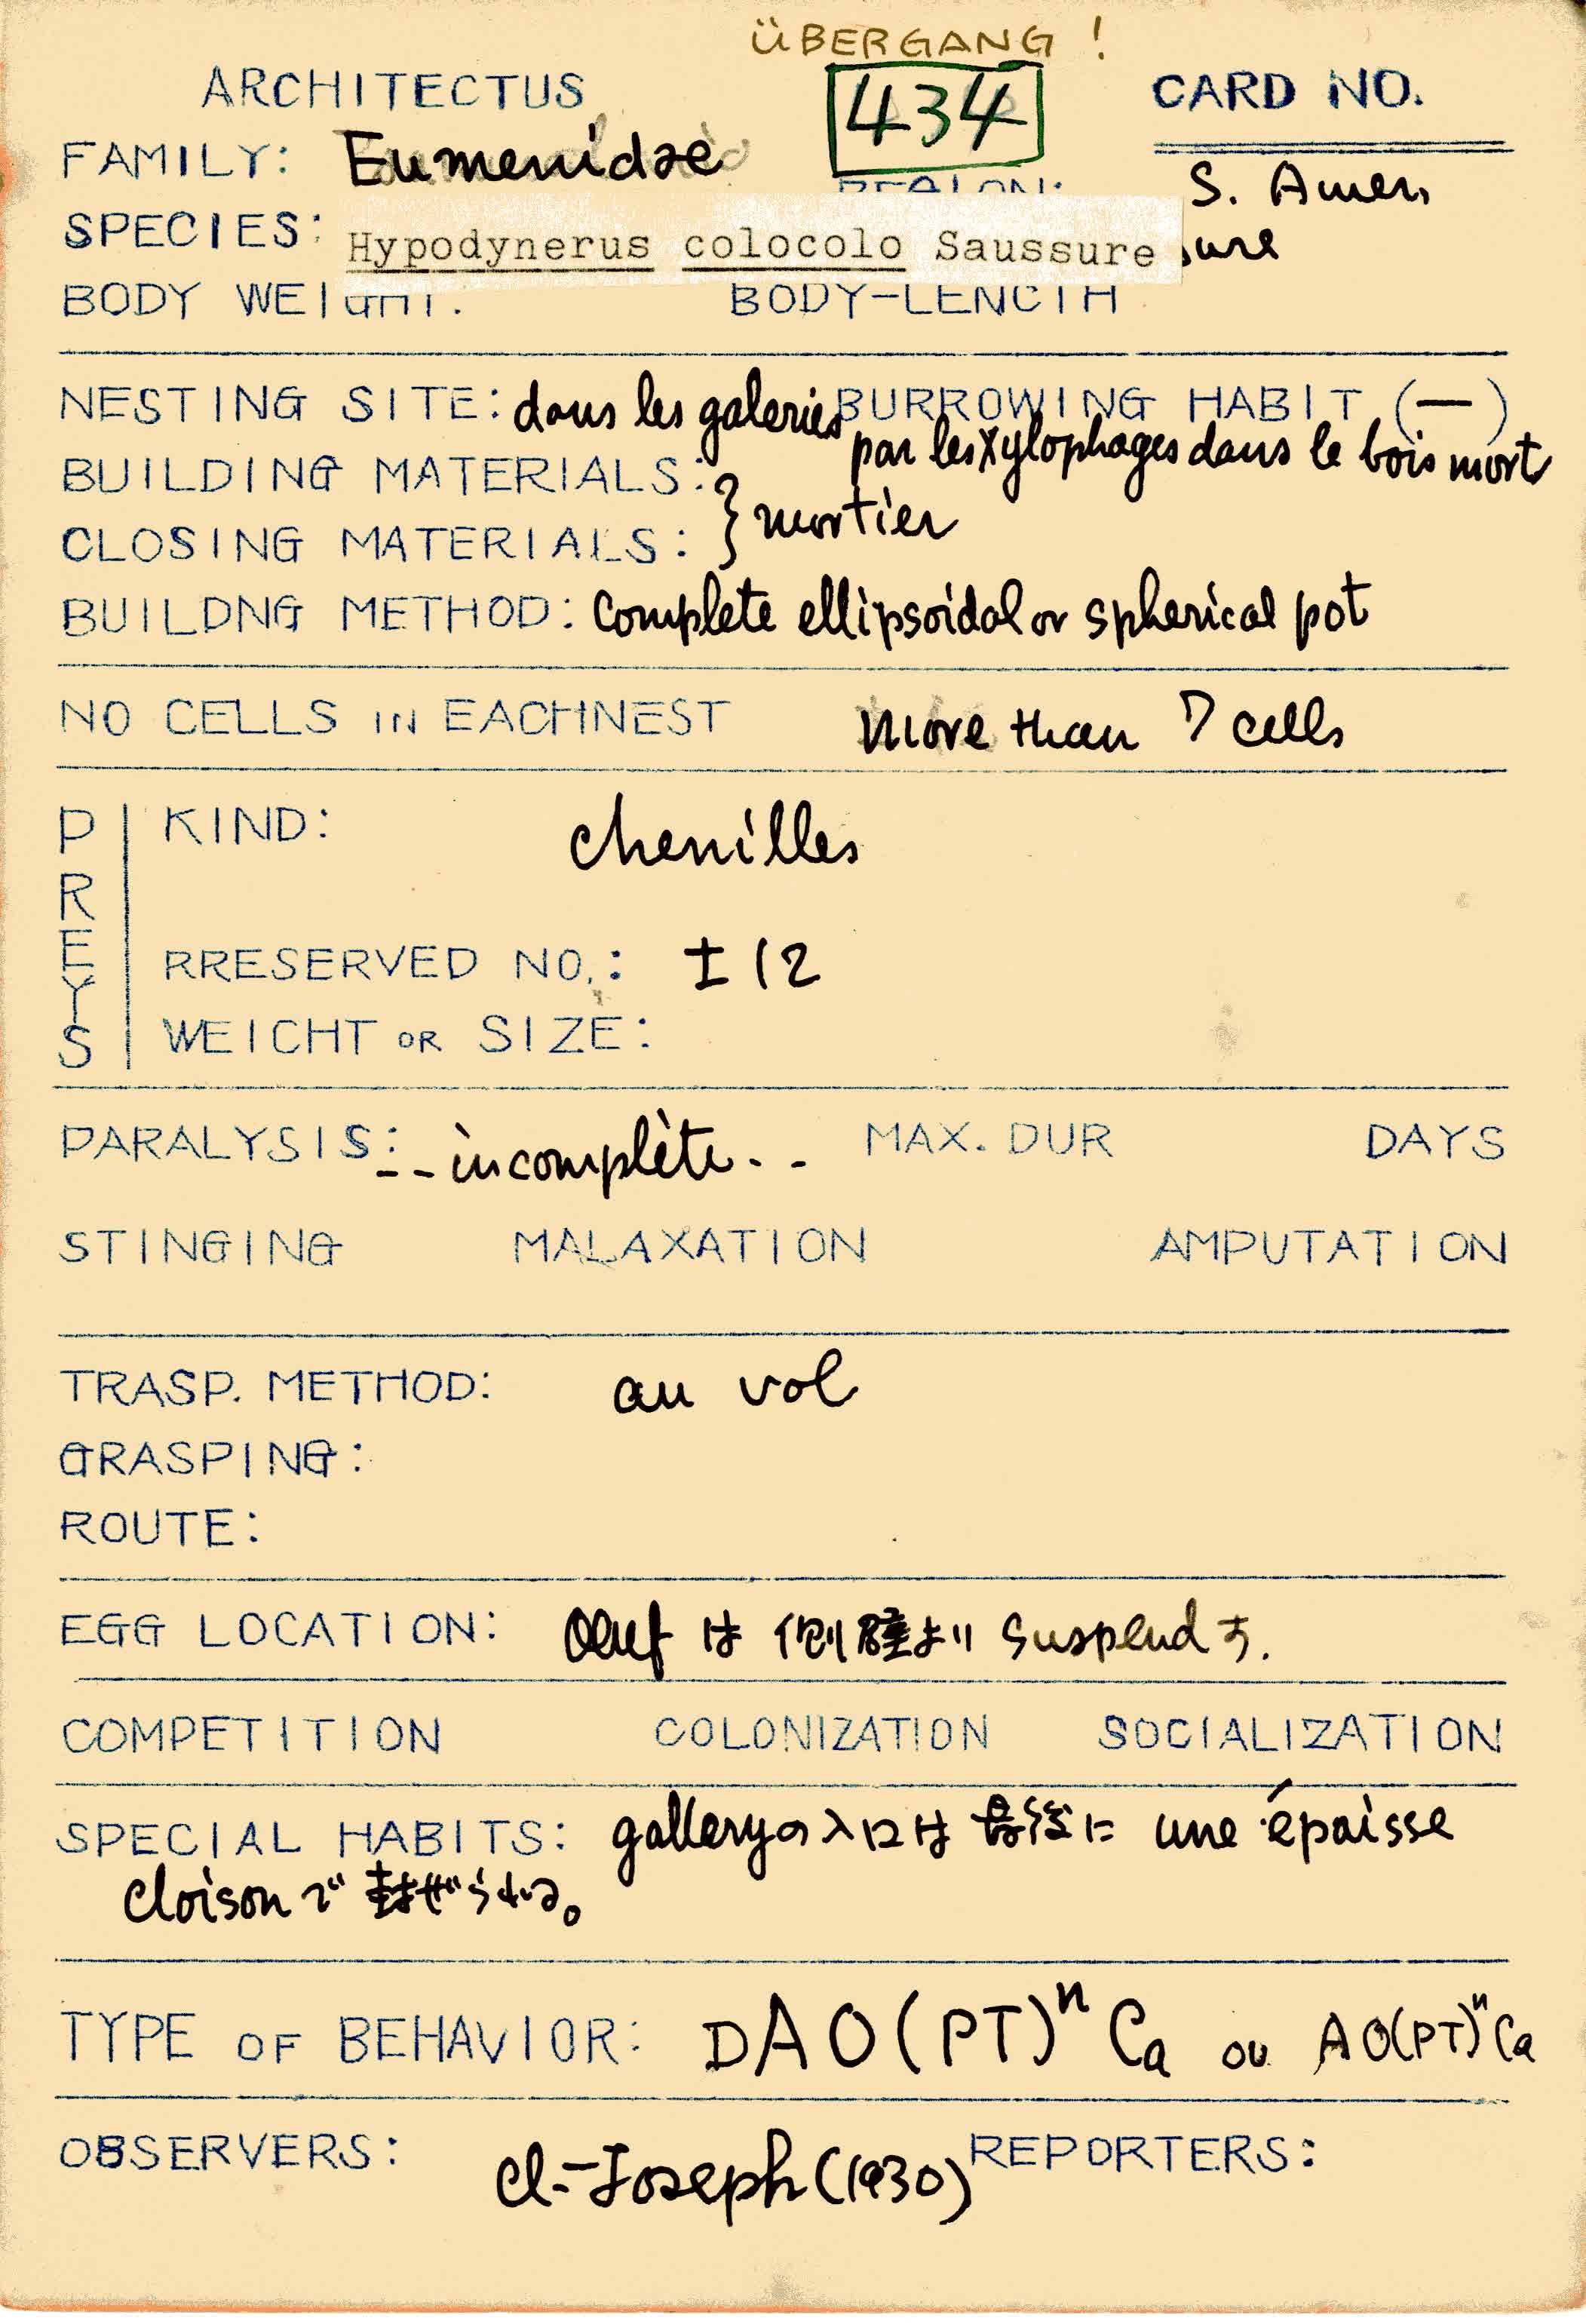 ÜBERGANG!
ARCHITECTUS 434 CARD NO.
FAMILY: Eumenidae REAION: S. Amer.
SPECIES: Hypodynerus colocolo Saussure
BODY WEIGHT. BODY-LENCTH
NESTING SITE: dans les galeries BURROWING HABIT (—)
par les xylophages dans le bois mort
BUILDING MATERIALS:
CLOSING MATERIALS: } mortier
BUILDNG METHOD: Complete ellipsoidal or spherical pot
NO CELLS IN EACHNEST more than 7 cells
PREYS KIND: chenilles
RRESERVED NO.: ± 12
WEICHT OR SIZE:
PARALYSIS: -- incomplète -- MAX. DUR DAYS
STINGING MALAXATION AMPUTATION
TRASP. METHOD: au vol
GRASPING:
ROUTE:
EGG LOCATION: Oeuf は側壁より suspend す.
COMPETITION COLONIZATION SOCIALIZATION
SPECIAL HABITS: galleryの入口は最後に une épaisse
cloisonで封ぜらる。
TYPE OF BEHAVIOR: DAO(PT)ⁿCa ou AO(PT)ⁿCa
OBSERVERS: Cl-Joseph (1930) REPORTERS: